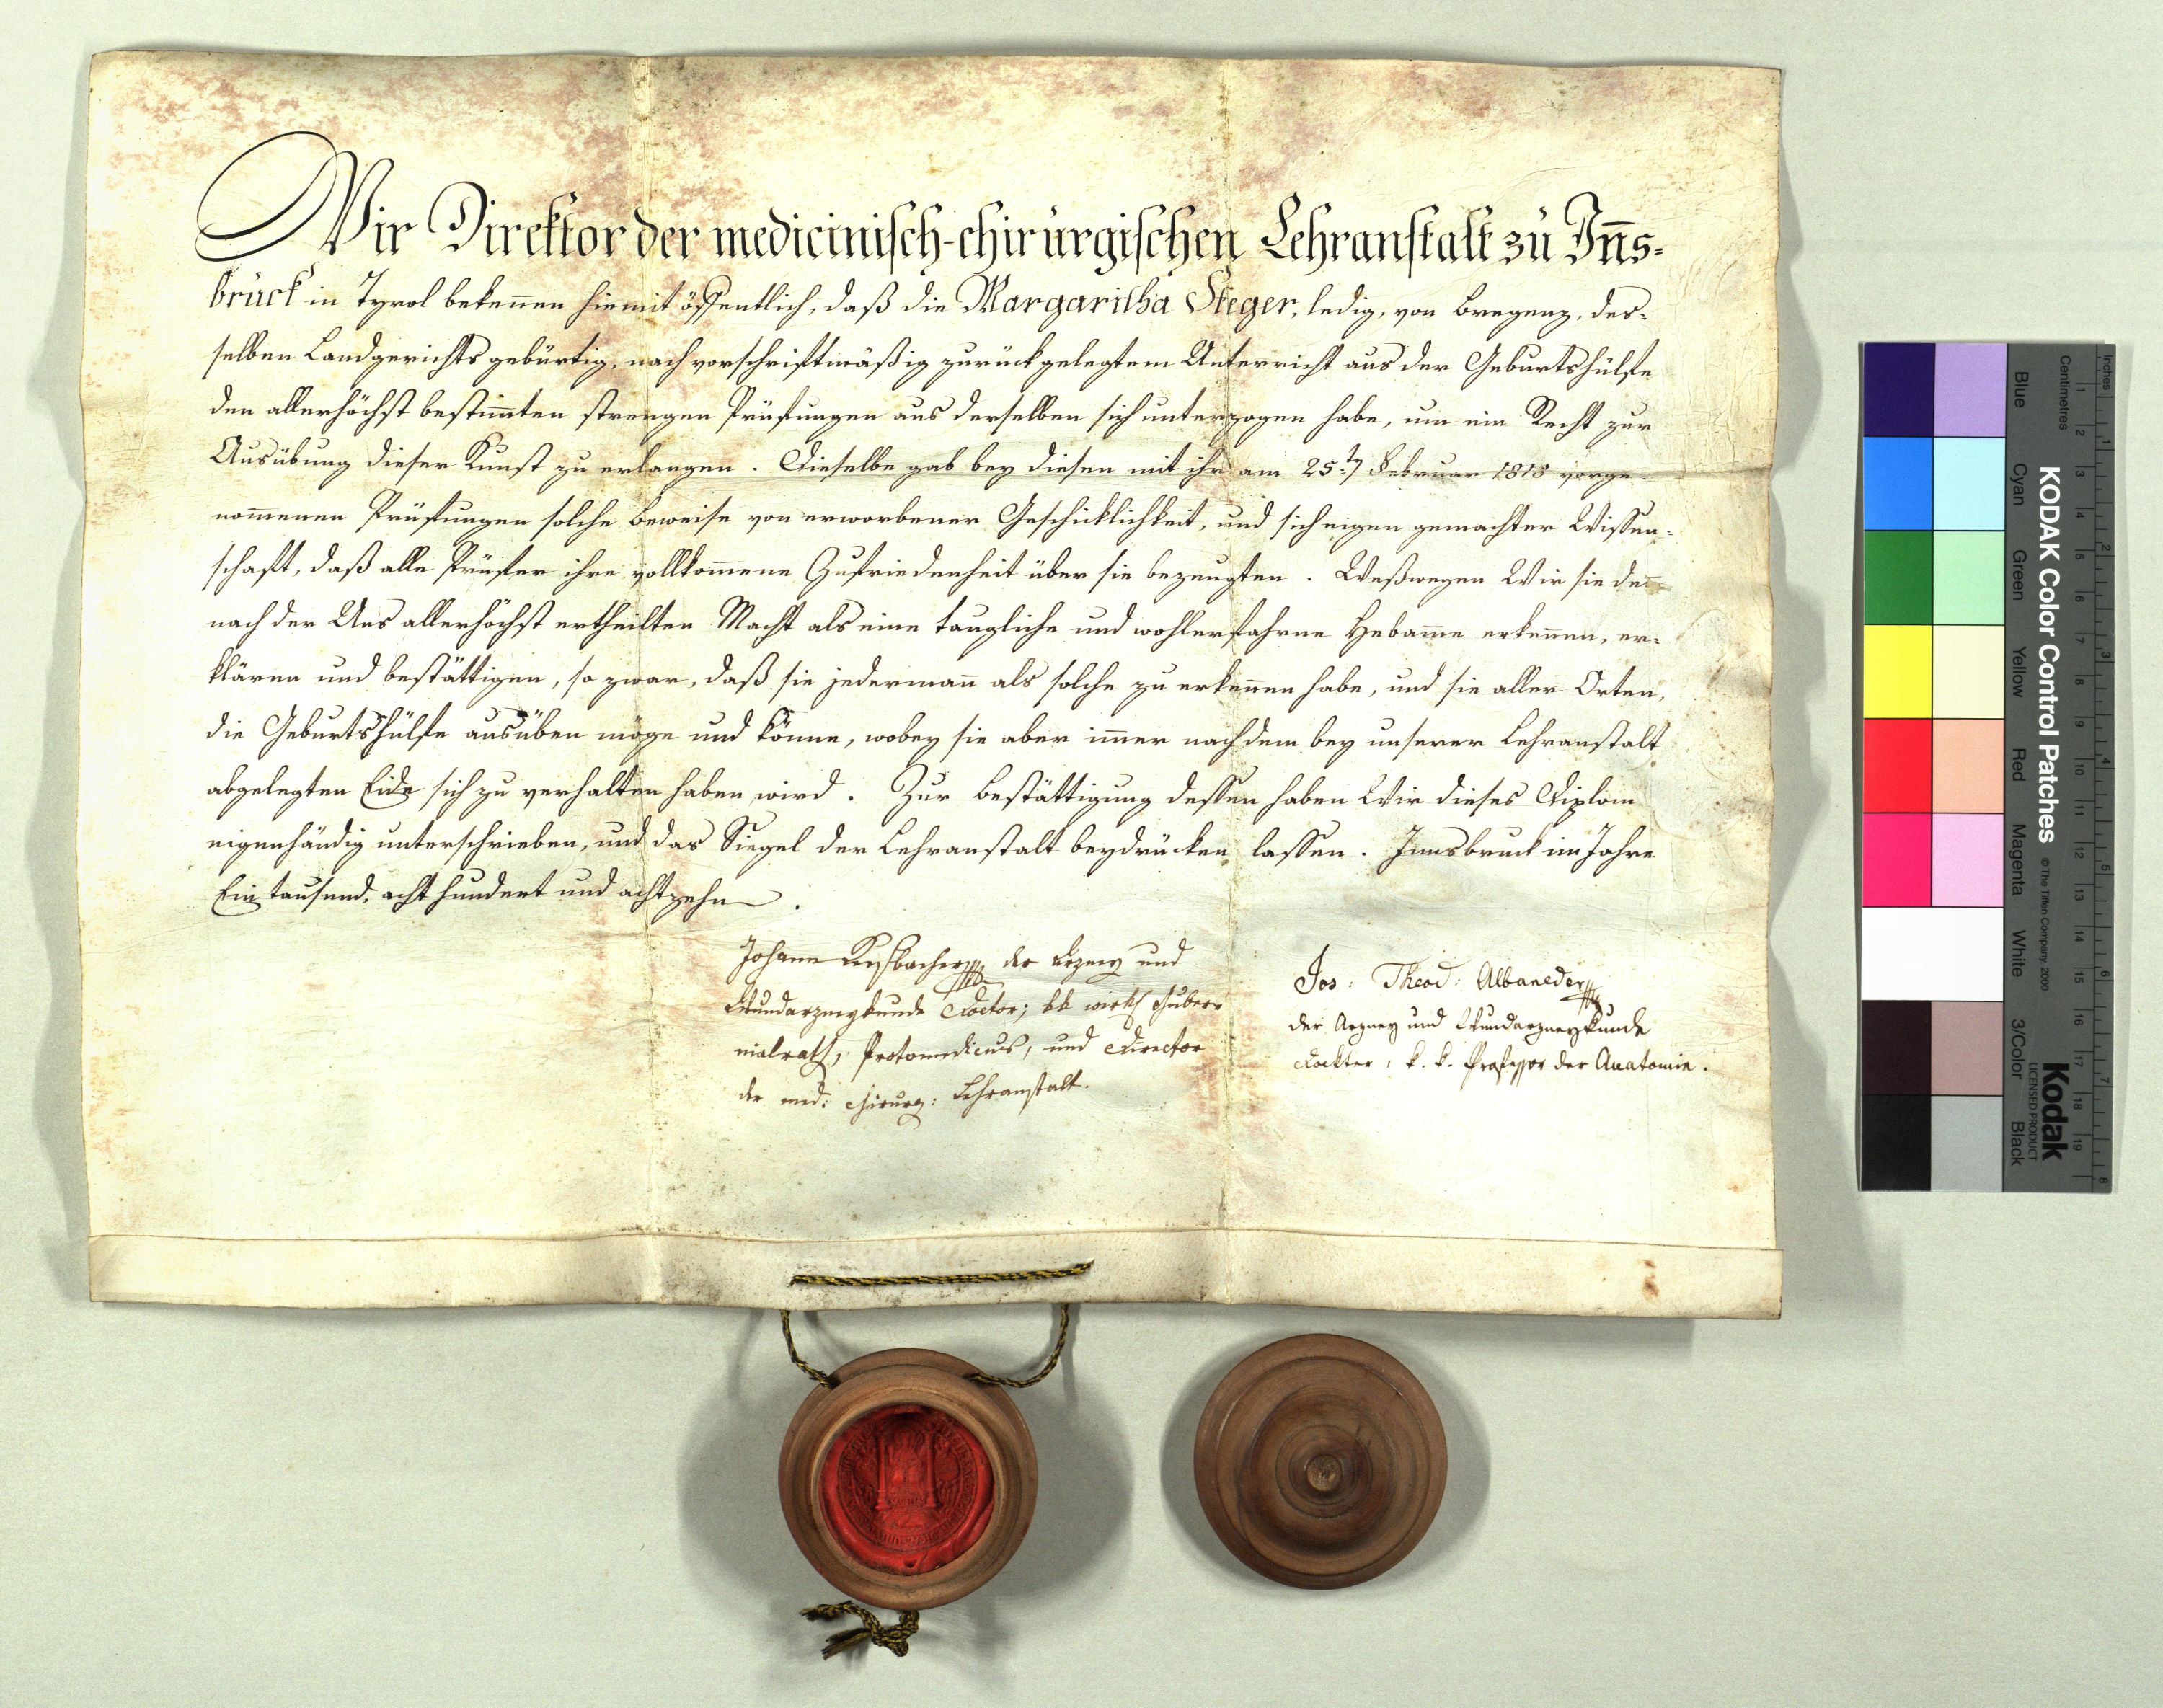 Wir Direktor der medicinisch-chirurgischen Lehranstalt zu Iñs-
bruck in Tyrol bekeñen hiemit öffentlich, daß die Margaritha Steger, ledig, von Bregenz, des-
selben Landgerichts gebürtig, nach vorschriftmäßig zurückgelegtem Unterricht aus der Geburtshülfe
den allerhöchst bestim̃ten strengen Prüfungen aus derselben sich unterzogen habe, um ein Recht zur
Ausübung dieser Kunst zu erlangen. Dieselbe gab bey diesen mit ihr am 25.ten Februar 1818 vorge-
nom̃enen Prüfungen solche Beweise von erworbener Geschicklichkeit, und sich eigen gemachter Wissen-
schaft, daß alle Prüfer ihre vollkom̃ene Zufriedenheit über sie bezeugten. Weßwegen Wir sie deñ
nach der Uns allerhöchst ertheilten Macht als eine taugliche und wohlerfahrne Hebam̃e erkeñen, er-
klären und bestättigen, so zwar, daß sie jedermañ als solche zu erkeñen habe, und sie aller Orten,
die Geburtshülfe ausüben möge und köñe, wobey sie aber im̃er nach dem bey unserer Lehranstalt
abgelegten Eide sich zu verhalten haben wird. Zur Bestättigung dessen haben Wir dieses Diplom
eigenhändig unterschrieben, und das Siegel der Lehranstalt beydrücken lassen. Innsbruck im Jahre
Ein tausend, acht hundert und achtzehn.
Johann der Arzney und
Wundarzneykunde Doctor; kk wirkl Guber-
nialrath, Protomedicus, und Director
der med: chirurg: Lehranstalt.
Jos: Theod: Albaneder
der Arzney und Wundarzneykunde
Docktor, k. k. Professor der Anatomie.
KODAK Color Control Patches © The Tiffen Company, 2000
Kodak
LICENSED PRODUCT
Inches 1 2 3 4 5 6 7 8
Centimetres 1 2 3 4 5 6 7 8 9 10 11 12 13 14 15 16 17 18 19
Blue Cyan Green Yellow Red Magenta White 3/Color Black